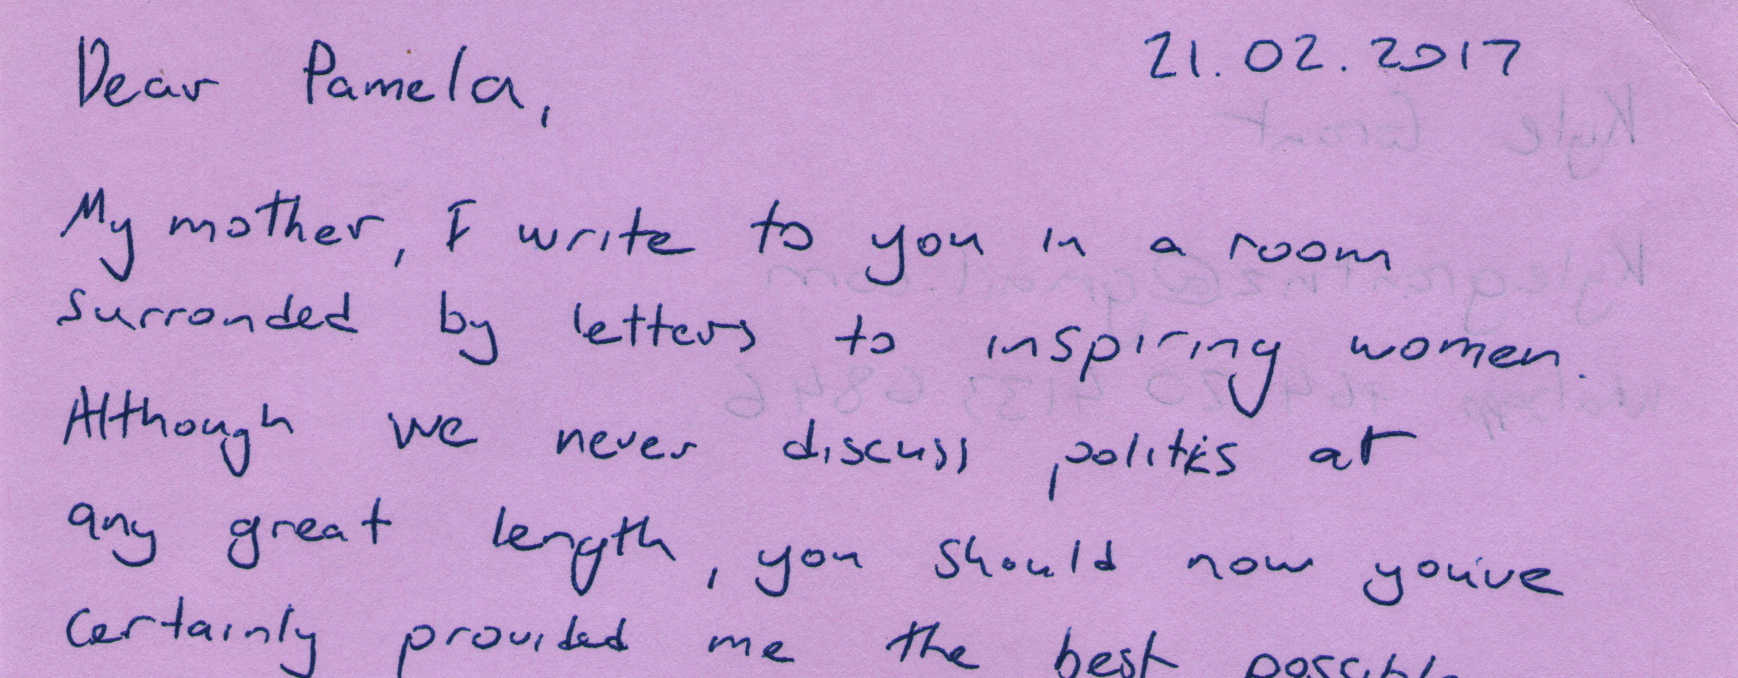 Dear Pamela, 21.02.2017
My mother, I write to you in a room
surronded by letters to inspiring women.
Although we never discuss politics at
any great length, you should now you've
certainly provided me the best possible